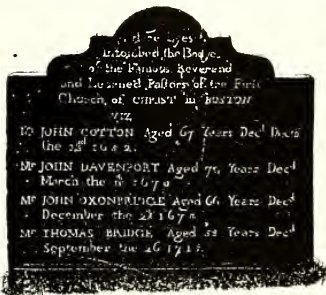 Intombed the Bodyes
of the Famous Reverend
and Learned Pastors of the First
Church, of CHRIST in BOSTON
VIZ
Mr JOHN COTTON Aged 67 Years Decd Decm
the 23d 1652.
Mr JOHN DAVENPORT Aged Years Decd
March the 1670
Mr JOHN OXONBRIDGE Aged 66 Years Decd
December the 1674
Mr THOMAS BRIDGE Aged 58 Years Decd
September the 26 1715.